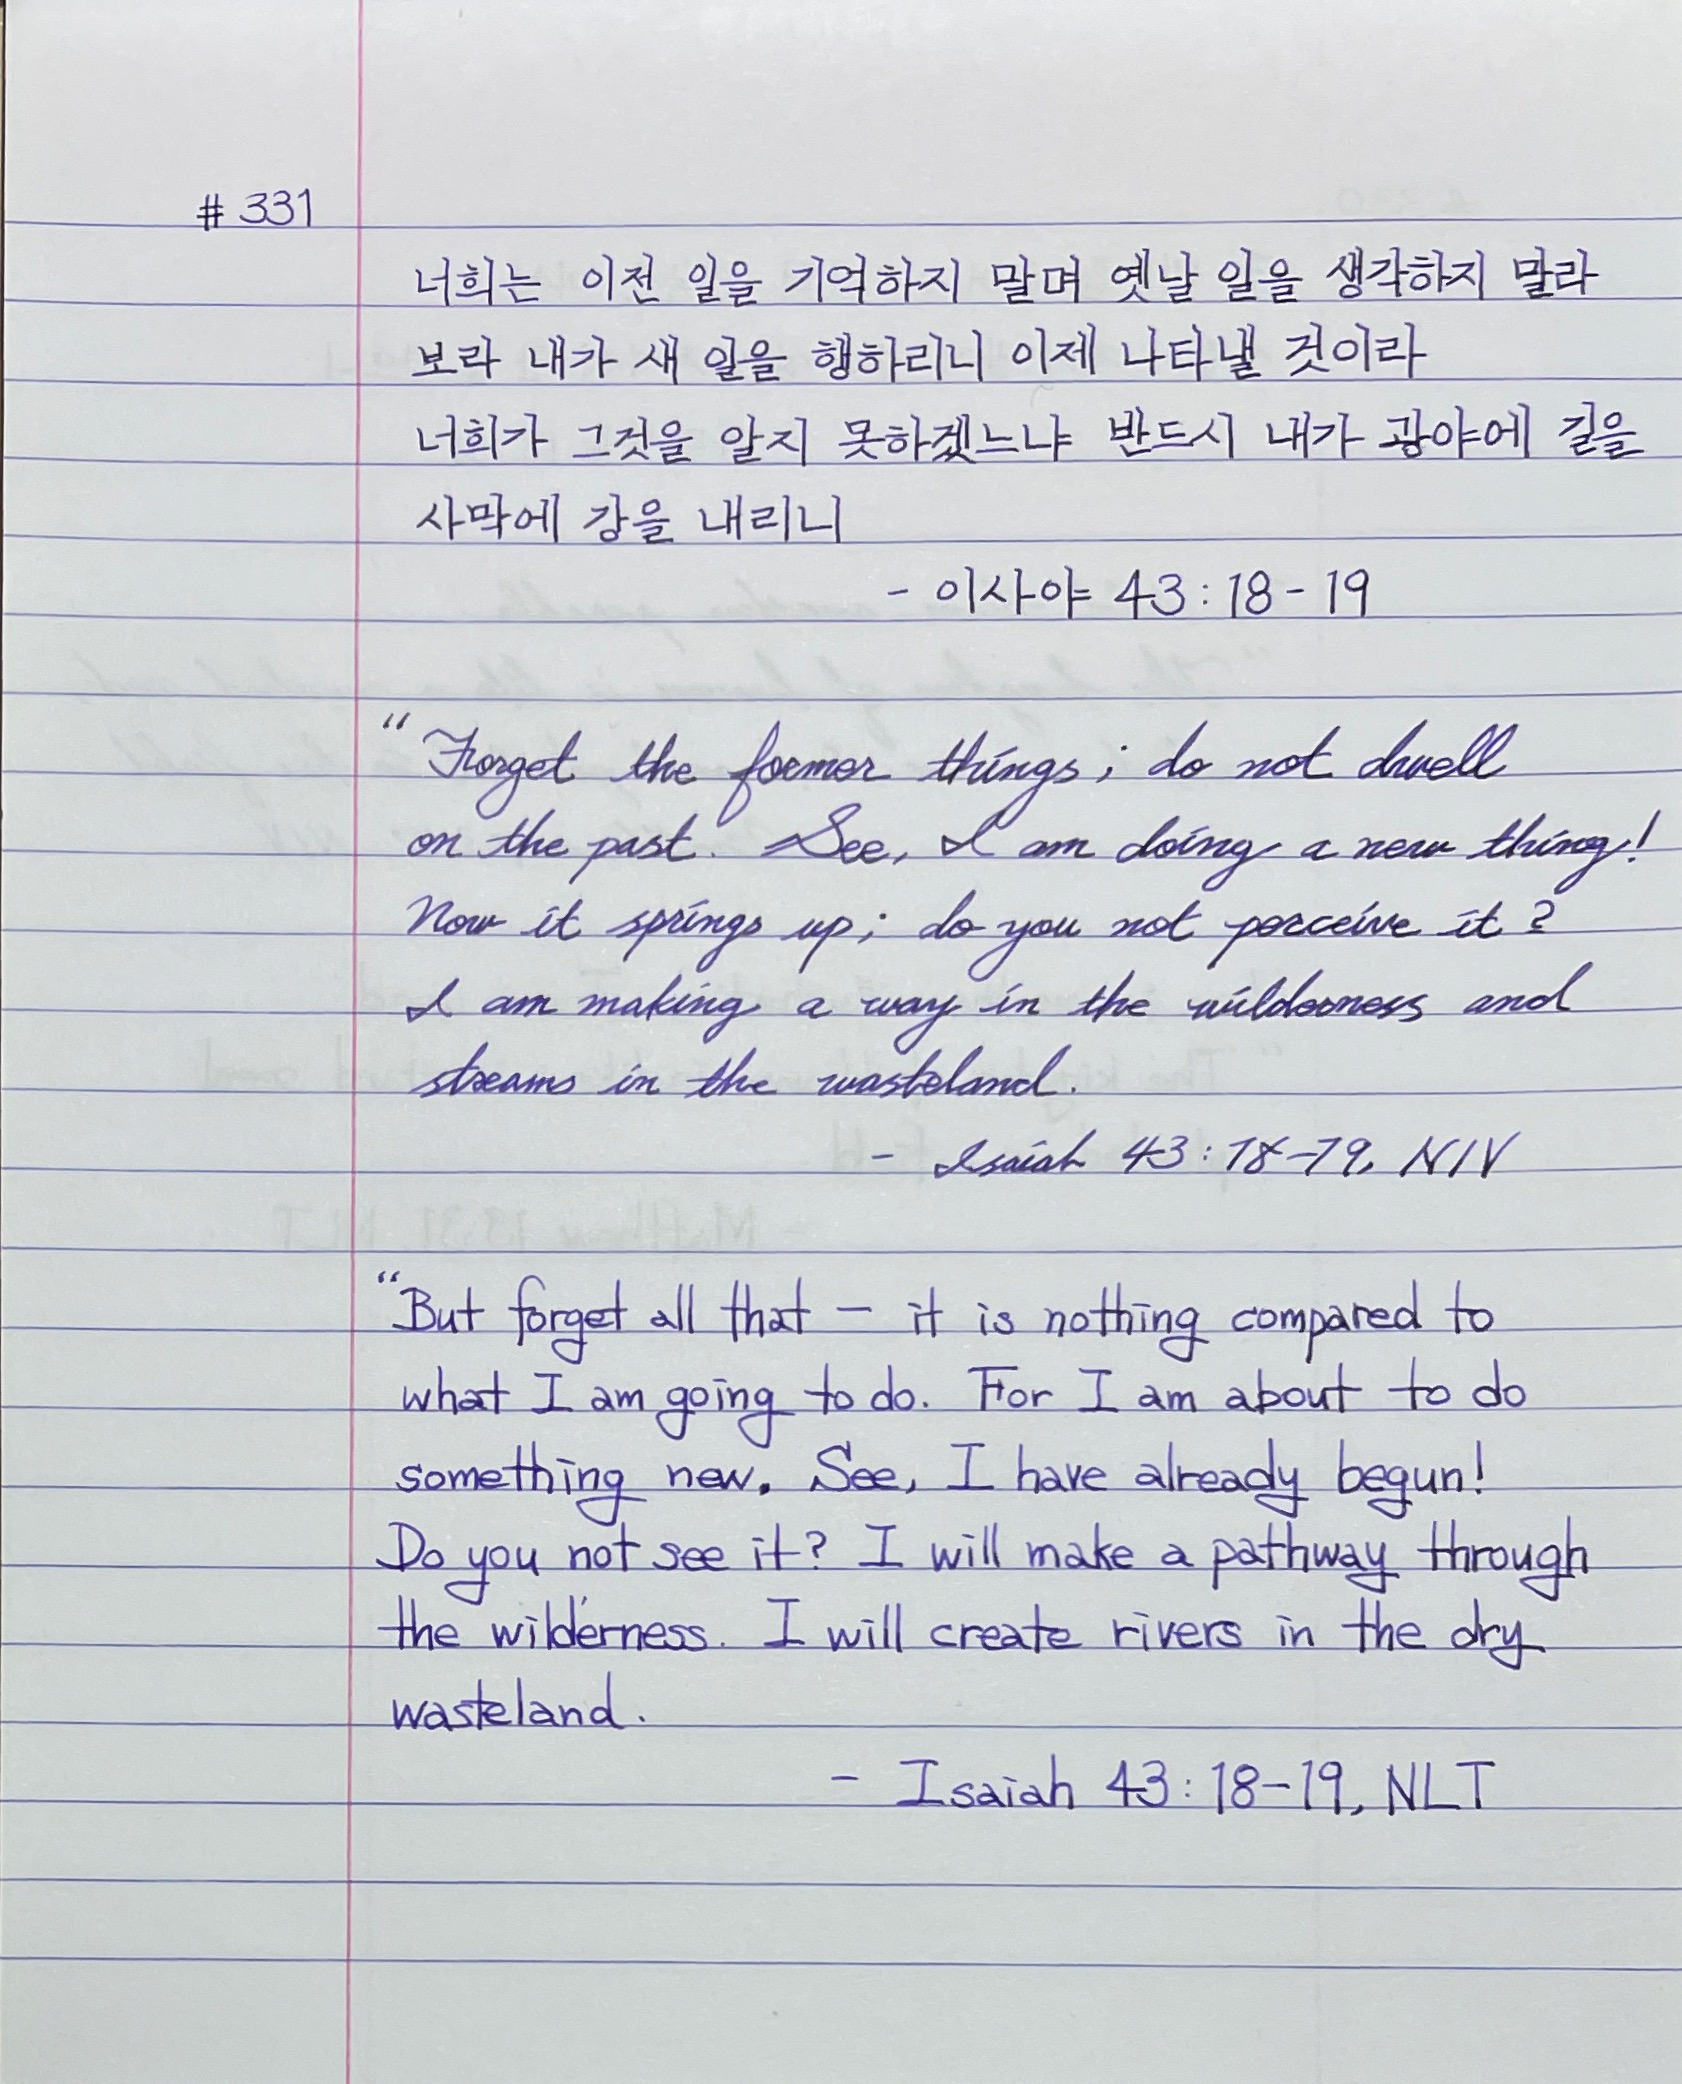 # 331
너희는 이전 일을 기억하지 말며 옛날 일을 생각하지 말라
보라 내가 새 일을 행하리니 이제 나타낼 것이라
너희가 그것을 알지 못하겠느냐 반드시 내가 광야에 길을
사막에 강을 내리니
- 이사야 43:18-19
"Forget the former things; do not dwell
on the past. See, I am doing a new thing!
Now it springs up; do you not perceive it?
I am making a way in the wilderness and
streams in the wasteland.
- Isaiah 43:18-19, NIV
"But forget all that - it is nothing compared to
what I am going to do. For I am about to do
something new. See, I have already begun!
Do you not see it? I will make a pathway through
the wilderness. I will create rivers in the dry
wasteland.
- Isaiah 43:18-19, NLT